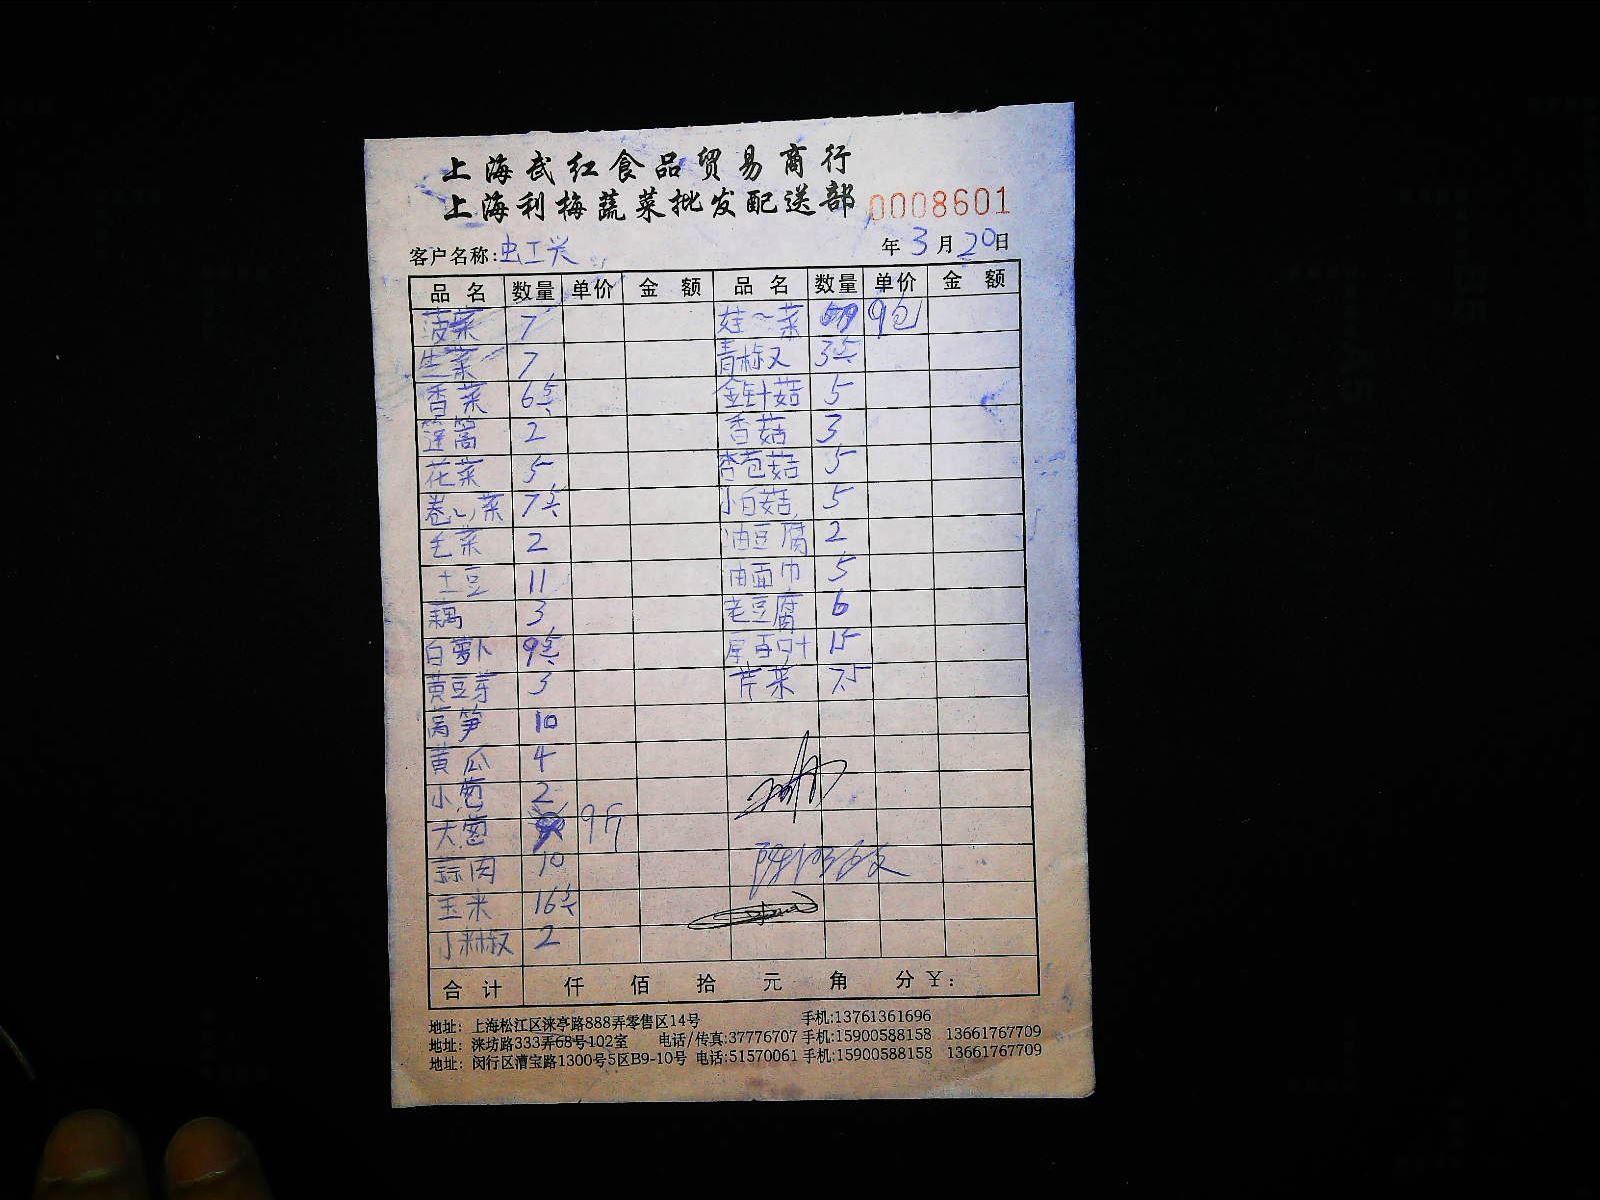 上海武红食品贸易商行
上海利梅蔬菜批发配送部 0008601
客户名称: 虫工兴 年 3 月 20 日
品名 数量 单价 金额 品名 数量 单价 金额
菠菜 7 娃〜菜 9包
生菜 7 青椒 3
香菜 6 金针菇 5
2 香菇 3
花菜 5 杏苞菇 5
卷心菜 7 小白菇 5
毛菜 2 油豆腐 2
土豆 11 油面巾 5
藕 3 老豆腐 6
白萝卜 9 百叶 15
黄豆芽 3 芹菜
莴笋 10
黄瓜 4
小葱 2
大葱 9斤
蒜肉 10
玉米 16
小米椒 2
合计 仟 佰 拾 元 角 分 ¥:
地址: 上海松江区涞亭路888弄零售区14号 手机:13761361696
地址: 涞坊路333弄68号102室 电话/传真:37776707 手机:15900588158 13661767709
地址: 闵行区漕宝路1300号5区B9-10号 电话:51570061 手机:15900588158 13661767709